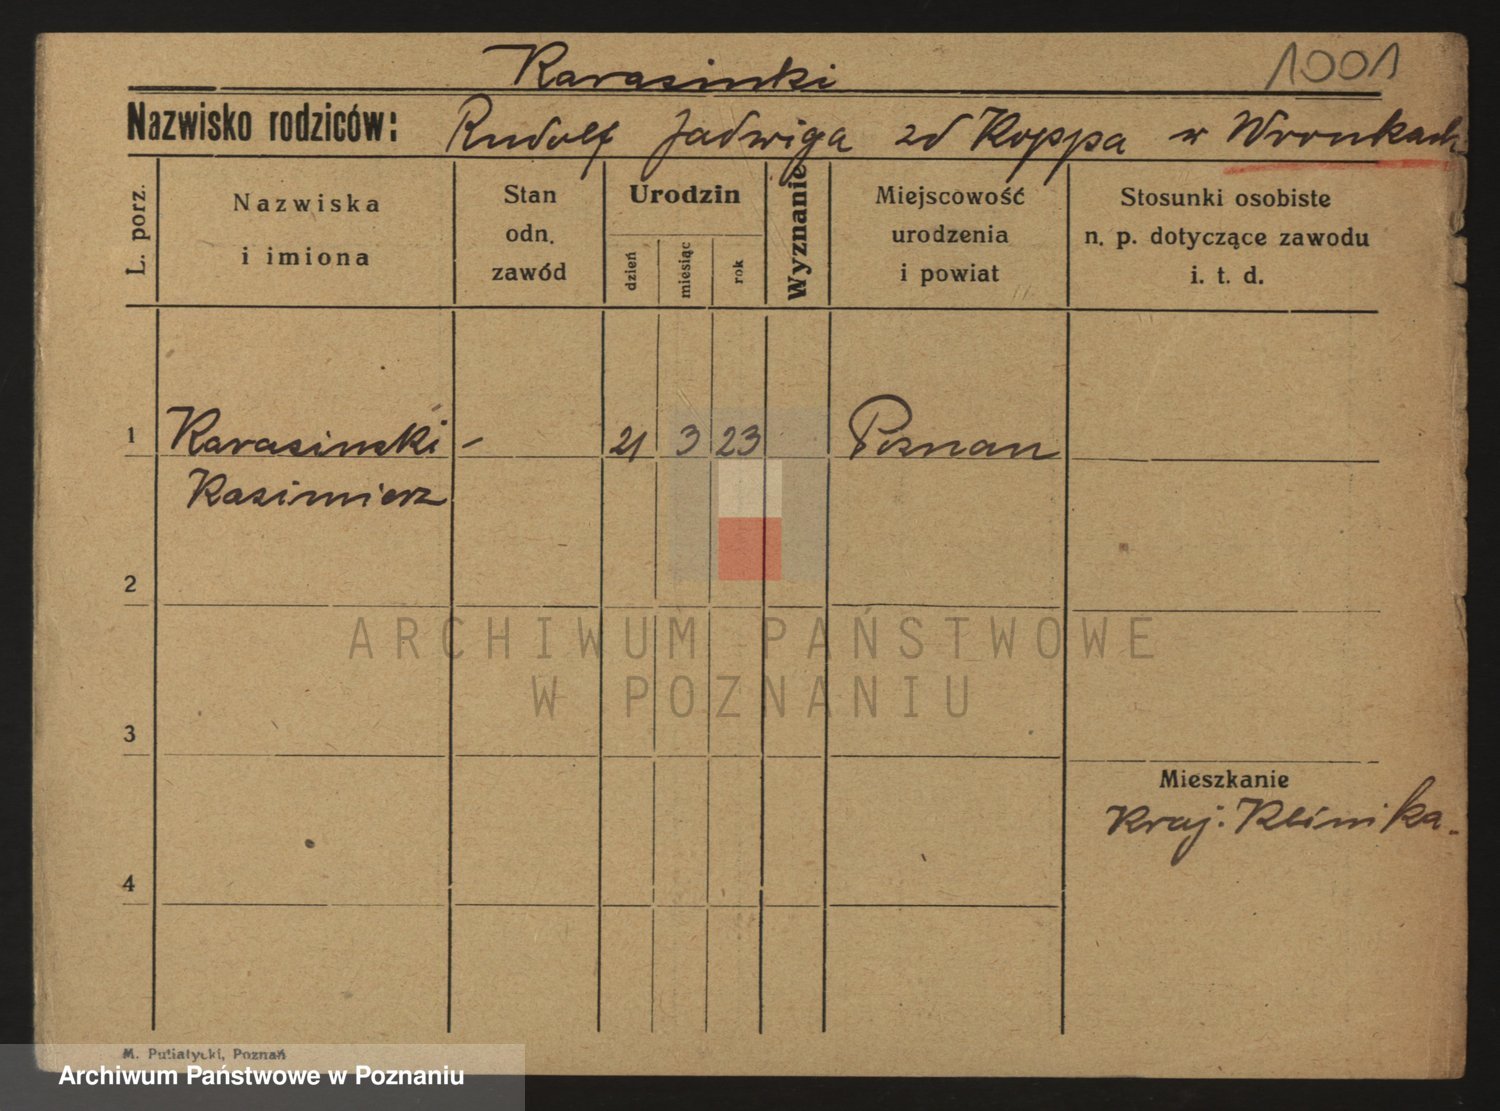 Karasinski
1001
Nazwisko rodziców: Rudolf Jadwiga zd Koppa w Wronkach
L. porz.
Nazwiska
i imiona
Stan
odn.
zawód
Urodzin
dzień
miesiąc
rok
Wyznanie
Miejscowość
urodzenia
i powiat
Stosunki osobiste
n. p. dotyczące zawodu
i. t. d.
1 Karasinski - 21 3 23 Poznan
Kazimierz
2
ARCHIWUM PAŃSTWOWE
W POZNANIU
3
Mieszkanie
Kraj. Klinika.
4
M. Putiatycki, Poznań
Archiwum Państwowe w Poznaniu